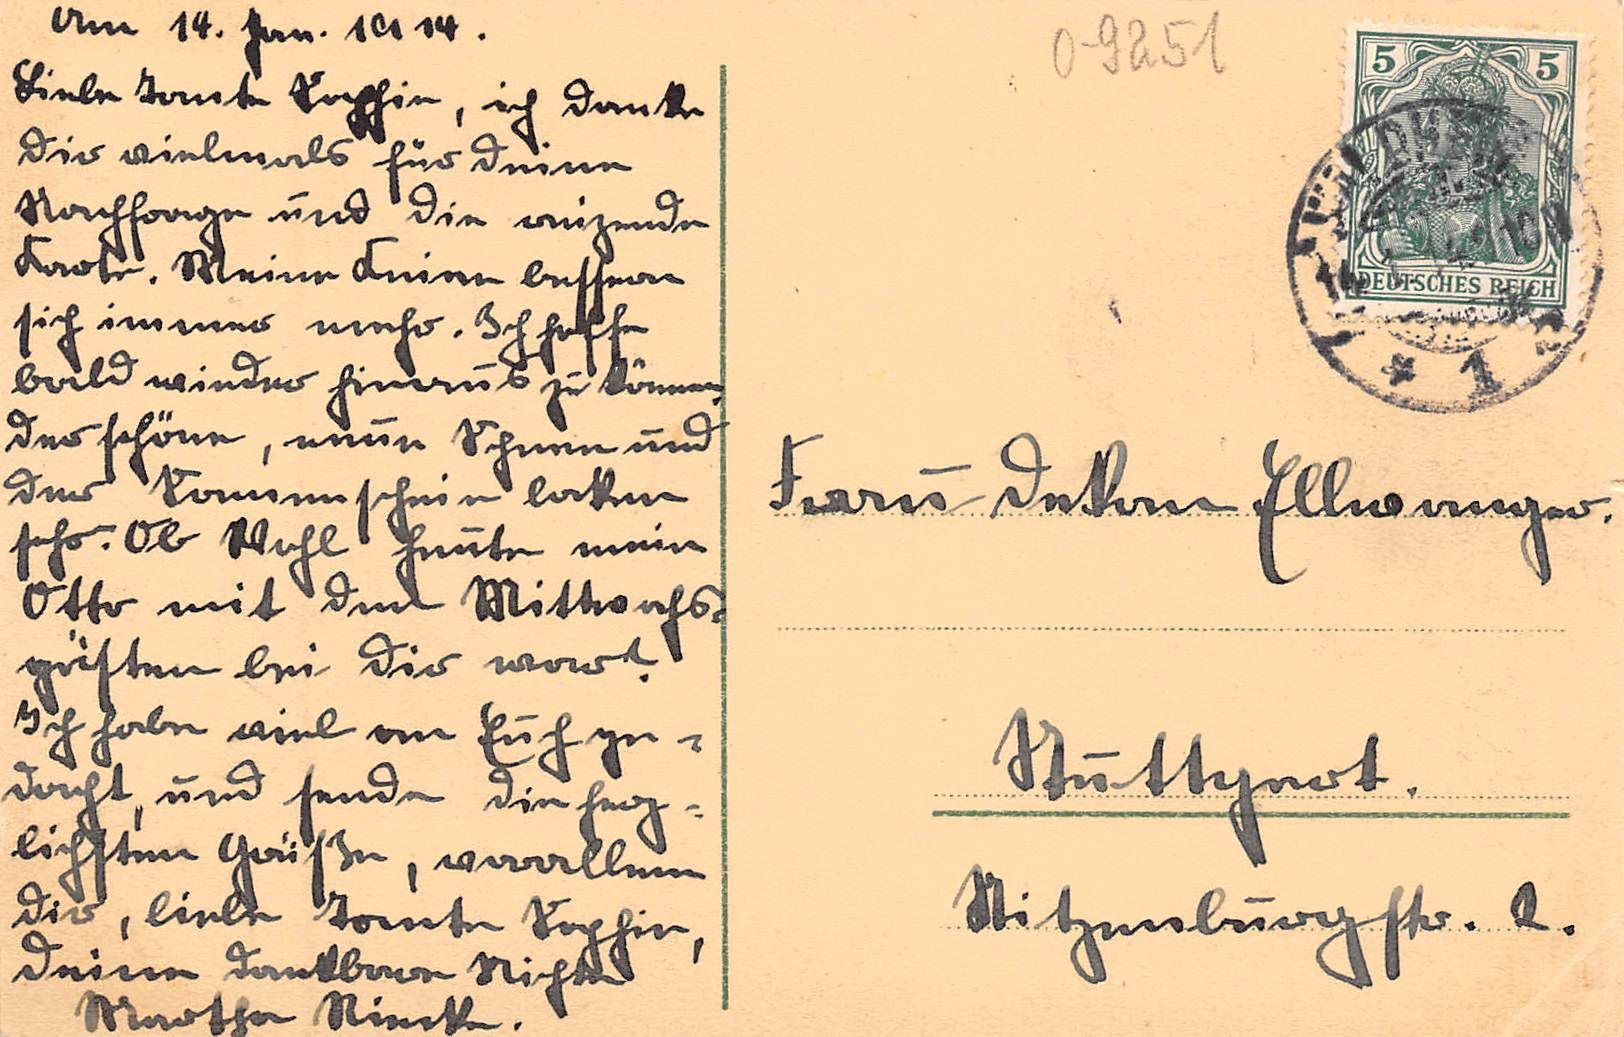 Am 14. Jan. 1914.
Liebe Tante Sophie, ich danke
Dir vielmals für Deine
Nachfrage und die reizende
Karte. Meine Kniee bessern
sich immer mehr. Ich hoffe
bald wieder hinaus zu können,
der schöne, neue Schnee und
der Sonnenschein locken
sehr. Ob Wohl heute mein
Otto mit den Mittwochs-
gästen bei Dir war?
Ich habe viel an Euch ge-
dacht, und sende die herz-
lichsten Grüße, vor allem
Dir, liebe Tante Sophie,
Deine dankbare Nichte
Martha
0-9251
5 5
DEUTSCHES REICH
* 1
Frau Dekan Ellwanger.
Stuttgart.
Hitzenburgstr. 2.